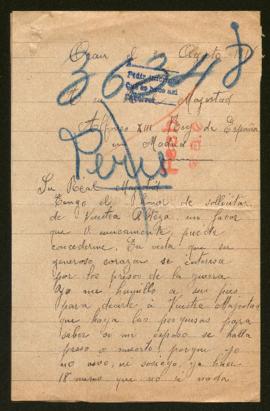 Oran el Agosto
36248
A su Magestad
Alfonso XIII Rey de España
en Madrid
Perus
Su Real Magestad
Tengo el honor de sollicitar
de Vuestra Alteza un favor
que V. unicamente puede
concederme. En vista que su
generoso corazon se interesa
por los presos de la guerra
Yo me humillo a sus pies
para decirle á Vuestra Magestad
que haga las pesquisas para
saber si mi esposo se halla
preso o muerto, porque yo
no vivo, ni sociego, ya hace
18 meses que no se nada